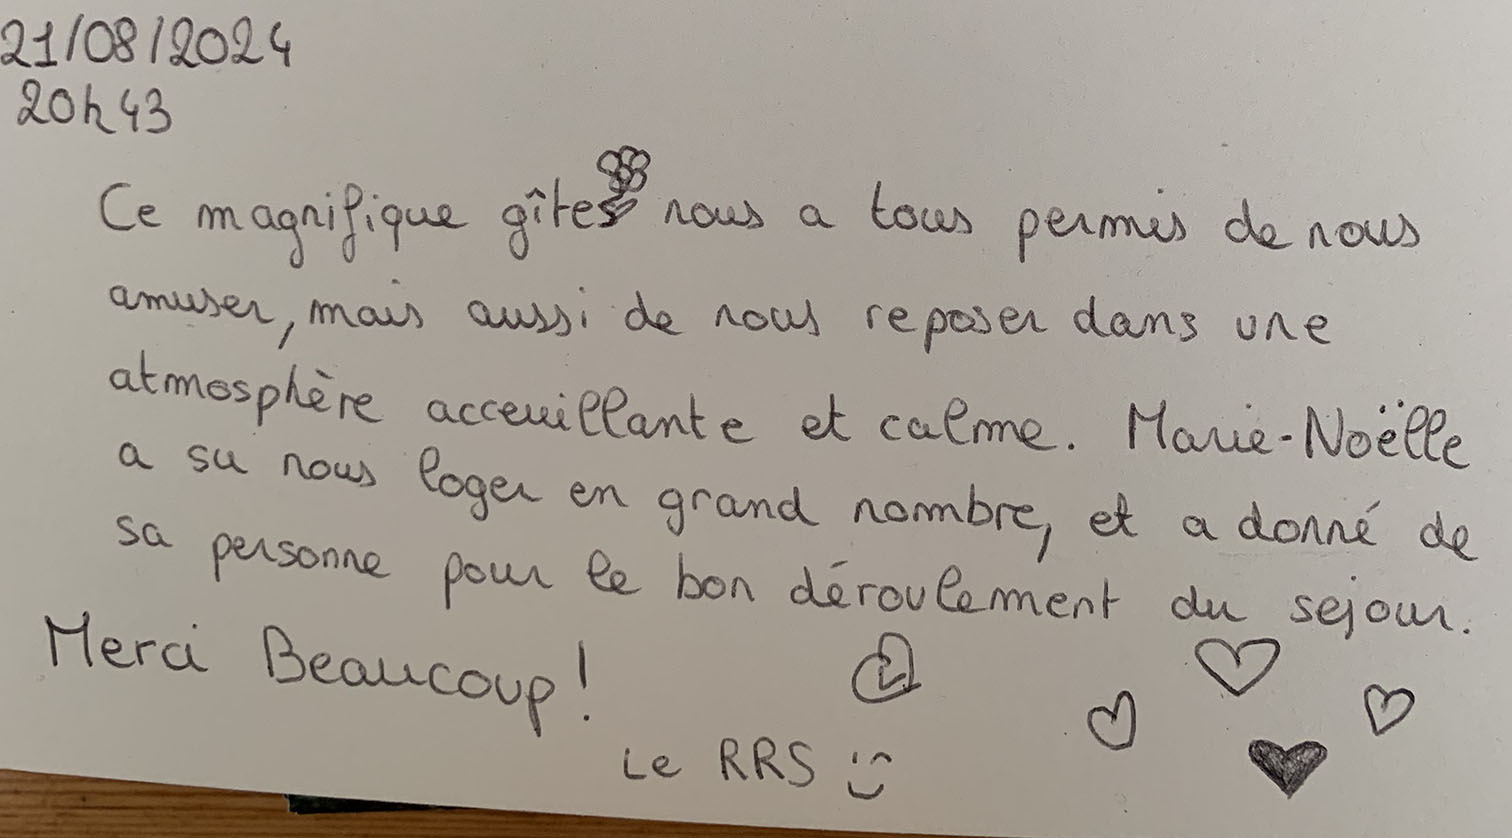 21/08/2024
20h43
Ce magnifique gîte nous a tous permis de nous
amuser, mais aussi de nous reposer dans une
atmosphère acceuillante et calme. Marie-Noëlle
a su nous loger en grand nombre, et a donné de
sa personne pour le bon déroulement du sejour.
Merci Beaucoup!
Le RRS